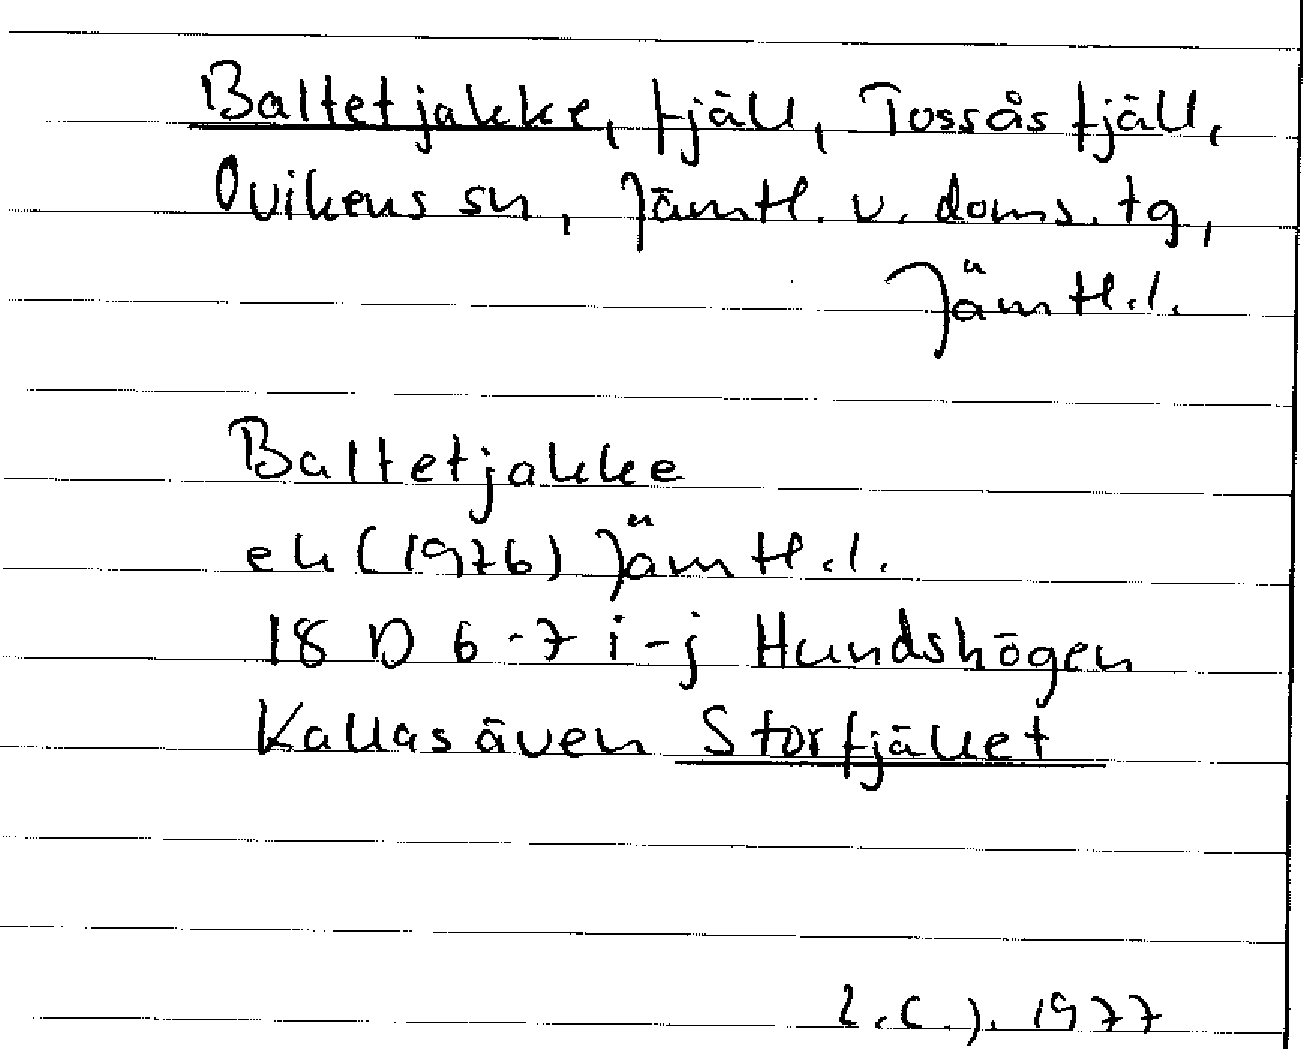 Baltetjakke, fjäll, Tossås fjäll,
Ovikens sn, Jämtl. v. doms. tg,
Jämtl.l.
Baltetjakke
ek (1976) Jämtl.l.
18 D 6-7 i-j Hundshögen
Kallas även Storfjället
1977